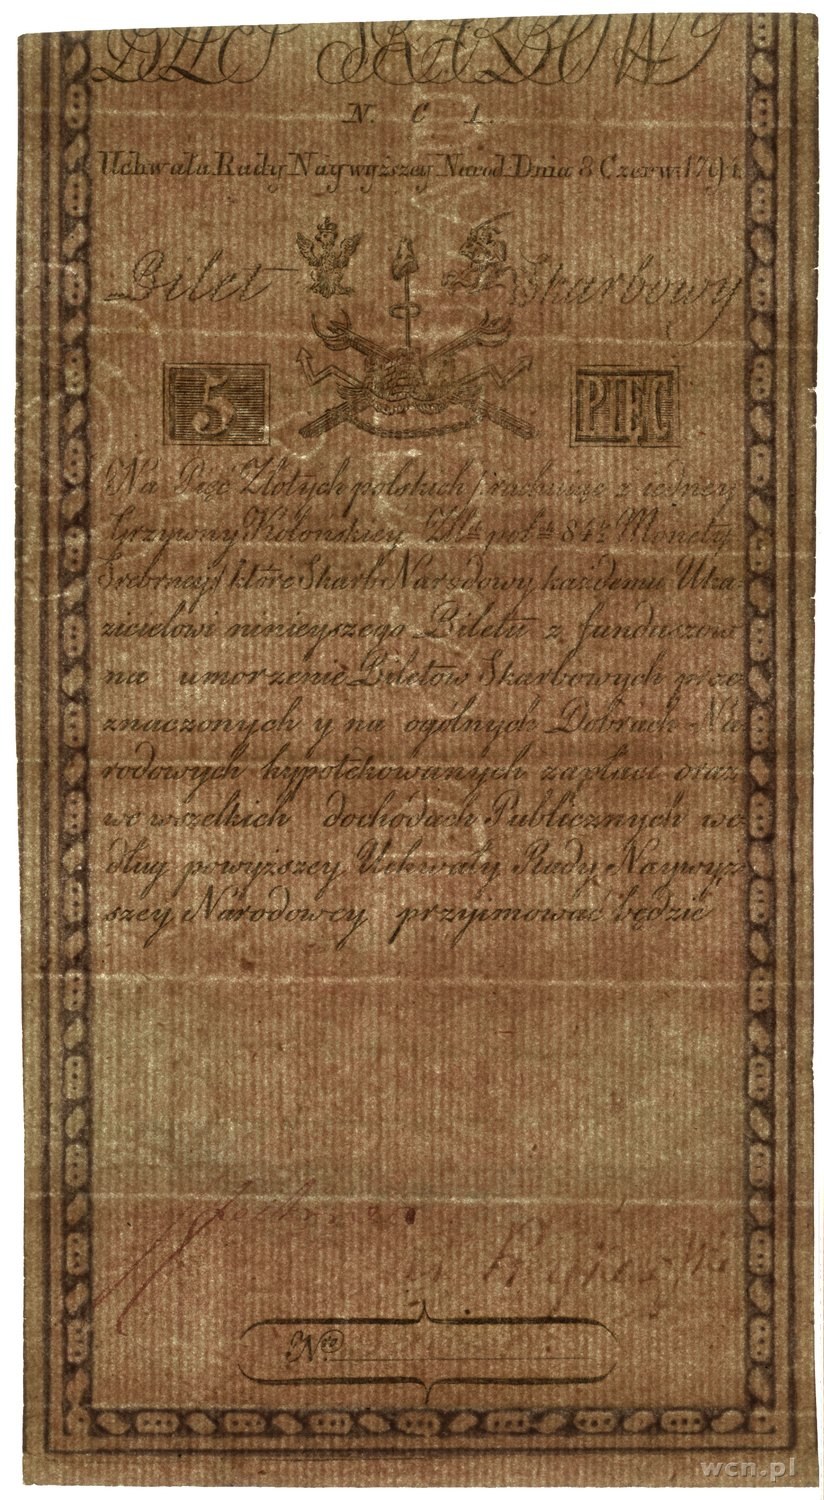 BILET SKARBOWY
N. C 1.
Uchwała Rady Naywyższey Narod: Dnia 8 Czerw: 1794 r.
Bilet Skarbowy
5 PIĘĆ
Na Pięć Złotych polskich / rachuiąc z iedney
Grzywny Kolońskiey Zł. pol. 84 ½ Monety
Srebrney / które Skarb Narodowy każdemu Uka
zicielowi ninieyszego Biletu z funduszow
na umorzenie Biletow Skarbowych prze
znaczonych y na ogólnych Dobrach Na
rodowych hypotekowanych zapłaci oraz
we wszelkich dochodach Publicznych we
dług powyższey Uchwały Rady Naywyż
szey Narodowey przyimować będzie
Nro
wcn.pl